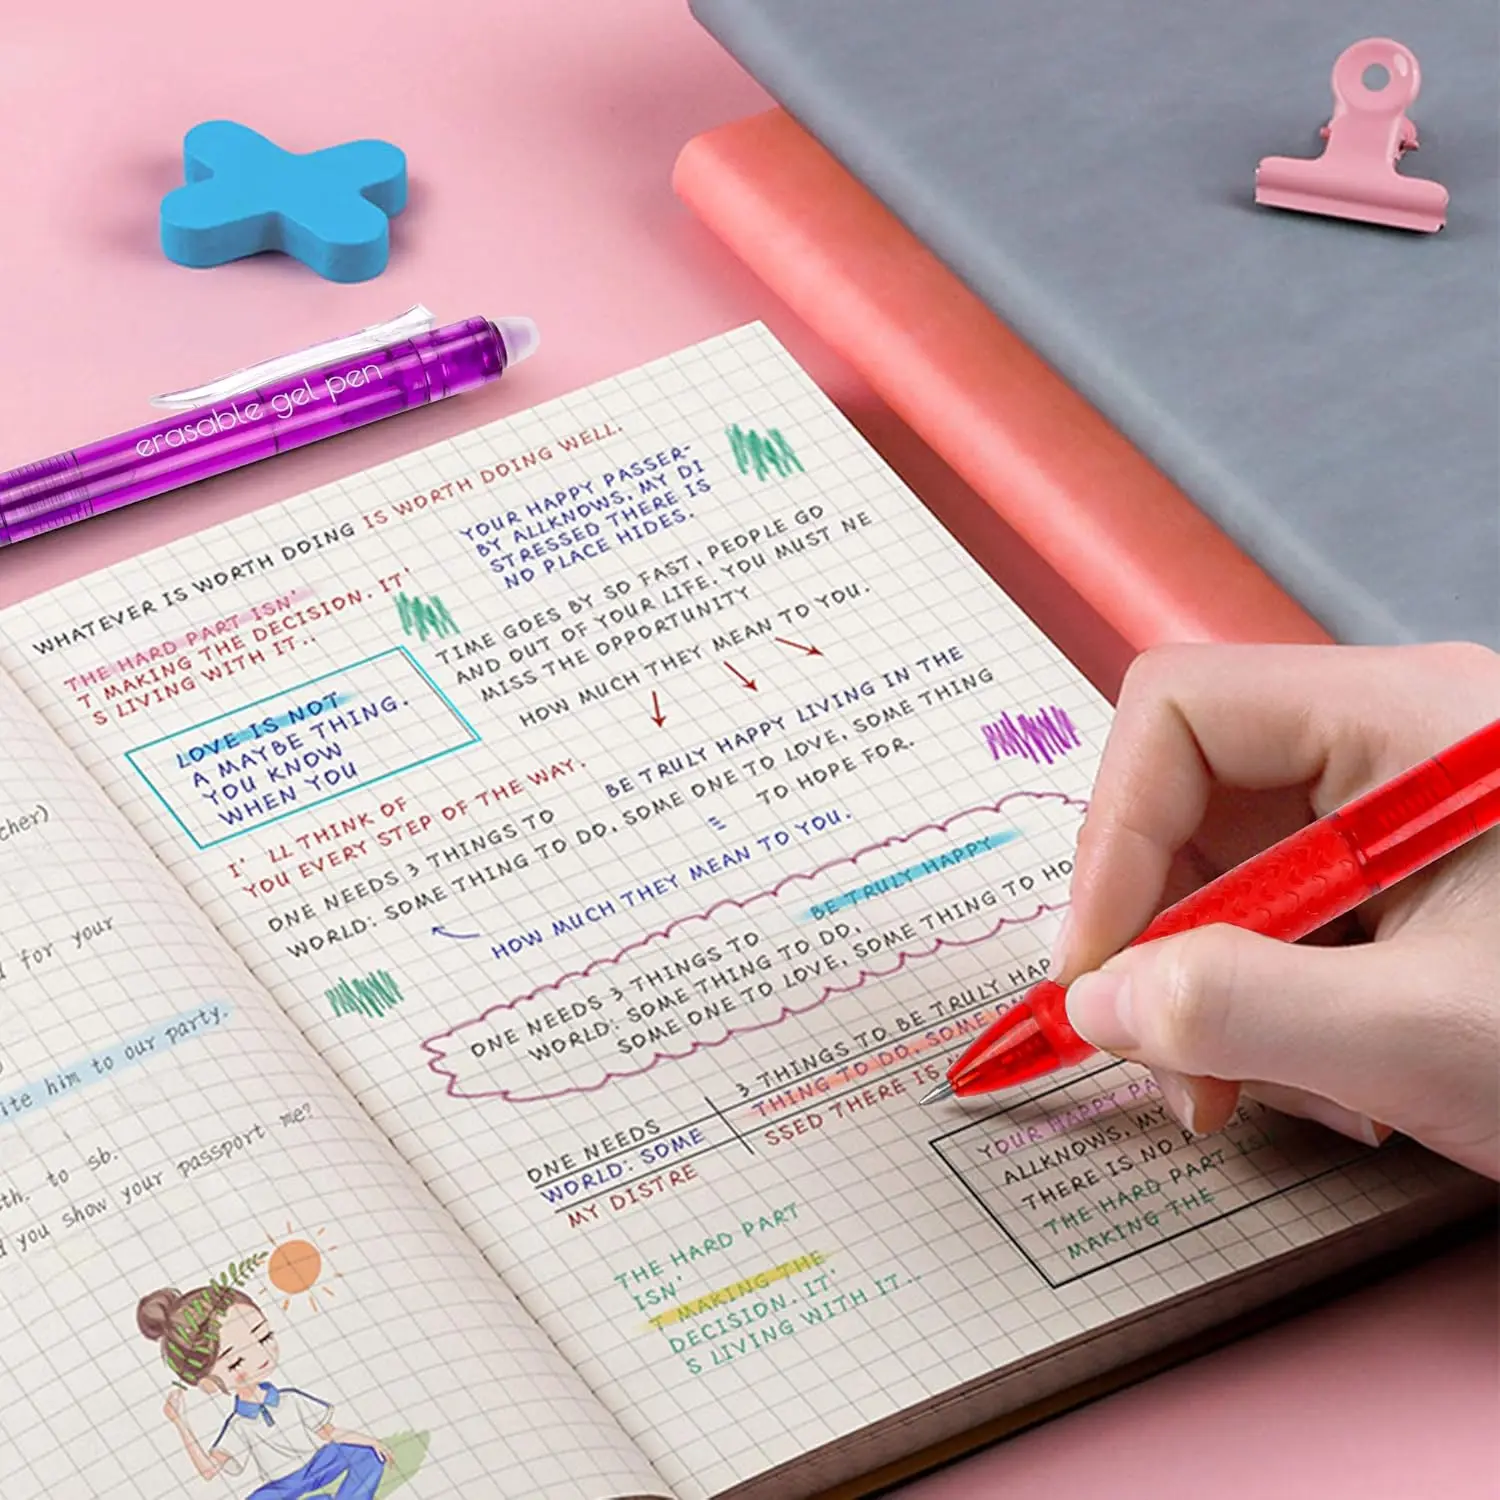 erasable gel pen
WHATEVER IS WORTH DOING IS WORTH DOING WELL.
THE HARD PART ISN'
T MAKING THE DECISION. IT'
S LIVING WITH IT..
YOUR HAPPY PASSER-
BY ALLKNOWS, MY DI
STRESSED THERE IS
NO PLACE HIDES.
TIME GOES BY SO FAST, PEOPLE GO
AND OUT OF YOUR LIFE. YOU MUST NE
MISS THE OPPORTUNITY
HOW MUCH THEY MEAN TO YOU.
LOVE IS NOT
A MAYBE THING.
YOU KNOW
WHEN YOU
BE TRULY HAPPY LIVING IN THE
I' LL THINK OF
YOU EVERY STEP OF THE WAY.
ONE NEEDS 3 THINGS TO
WORLD: SOME THING TO DO, SOME ONE TO LOVE, SOME THING
TO HOPE FOR.
HOW MUCH THEY MEAN TO YOU.
BE TRULY HAPPY
ONE NEEDS 3 THINGS TO
WORLD: SOME THING TO DO,
SOME ONE TO LOVE, SOME THING TO HO
3 THINGS TO BE TRULY HAP
THING TO DO, SOME ON
SSED THERE IS
ONE NEEDS
WORLD: SOME
MY DISTRE
YOUR HAPPY PA
ALLKNOWS, MY
THERE IS NO
THE HARD PART ISN
MAKING THE
THE HARD PART
ISN'
T MAKING THE
DECISION. IT'
S LIVING WITH IT..
cher)
for your
ite him to our party.
th. to sb.
you show your passport me?